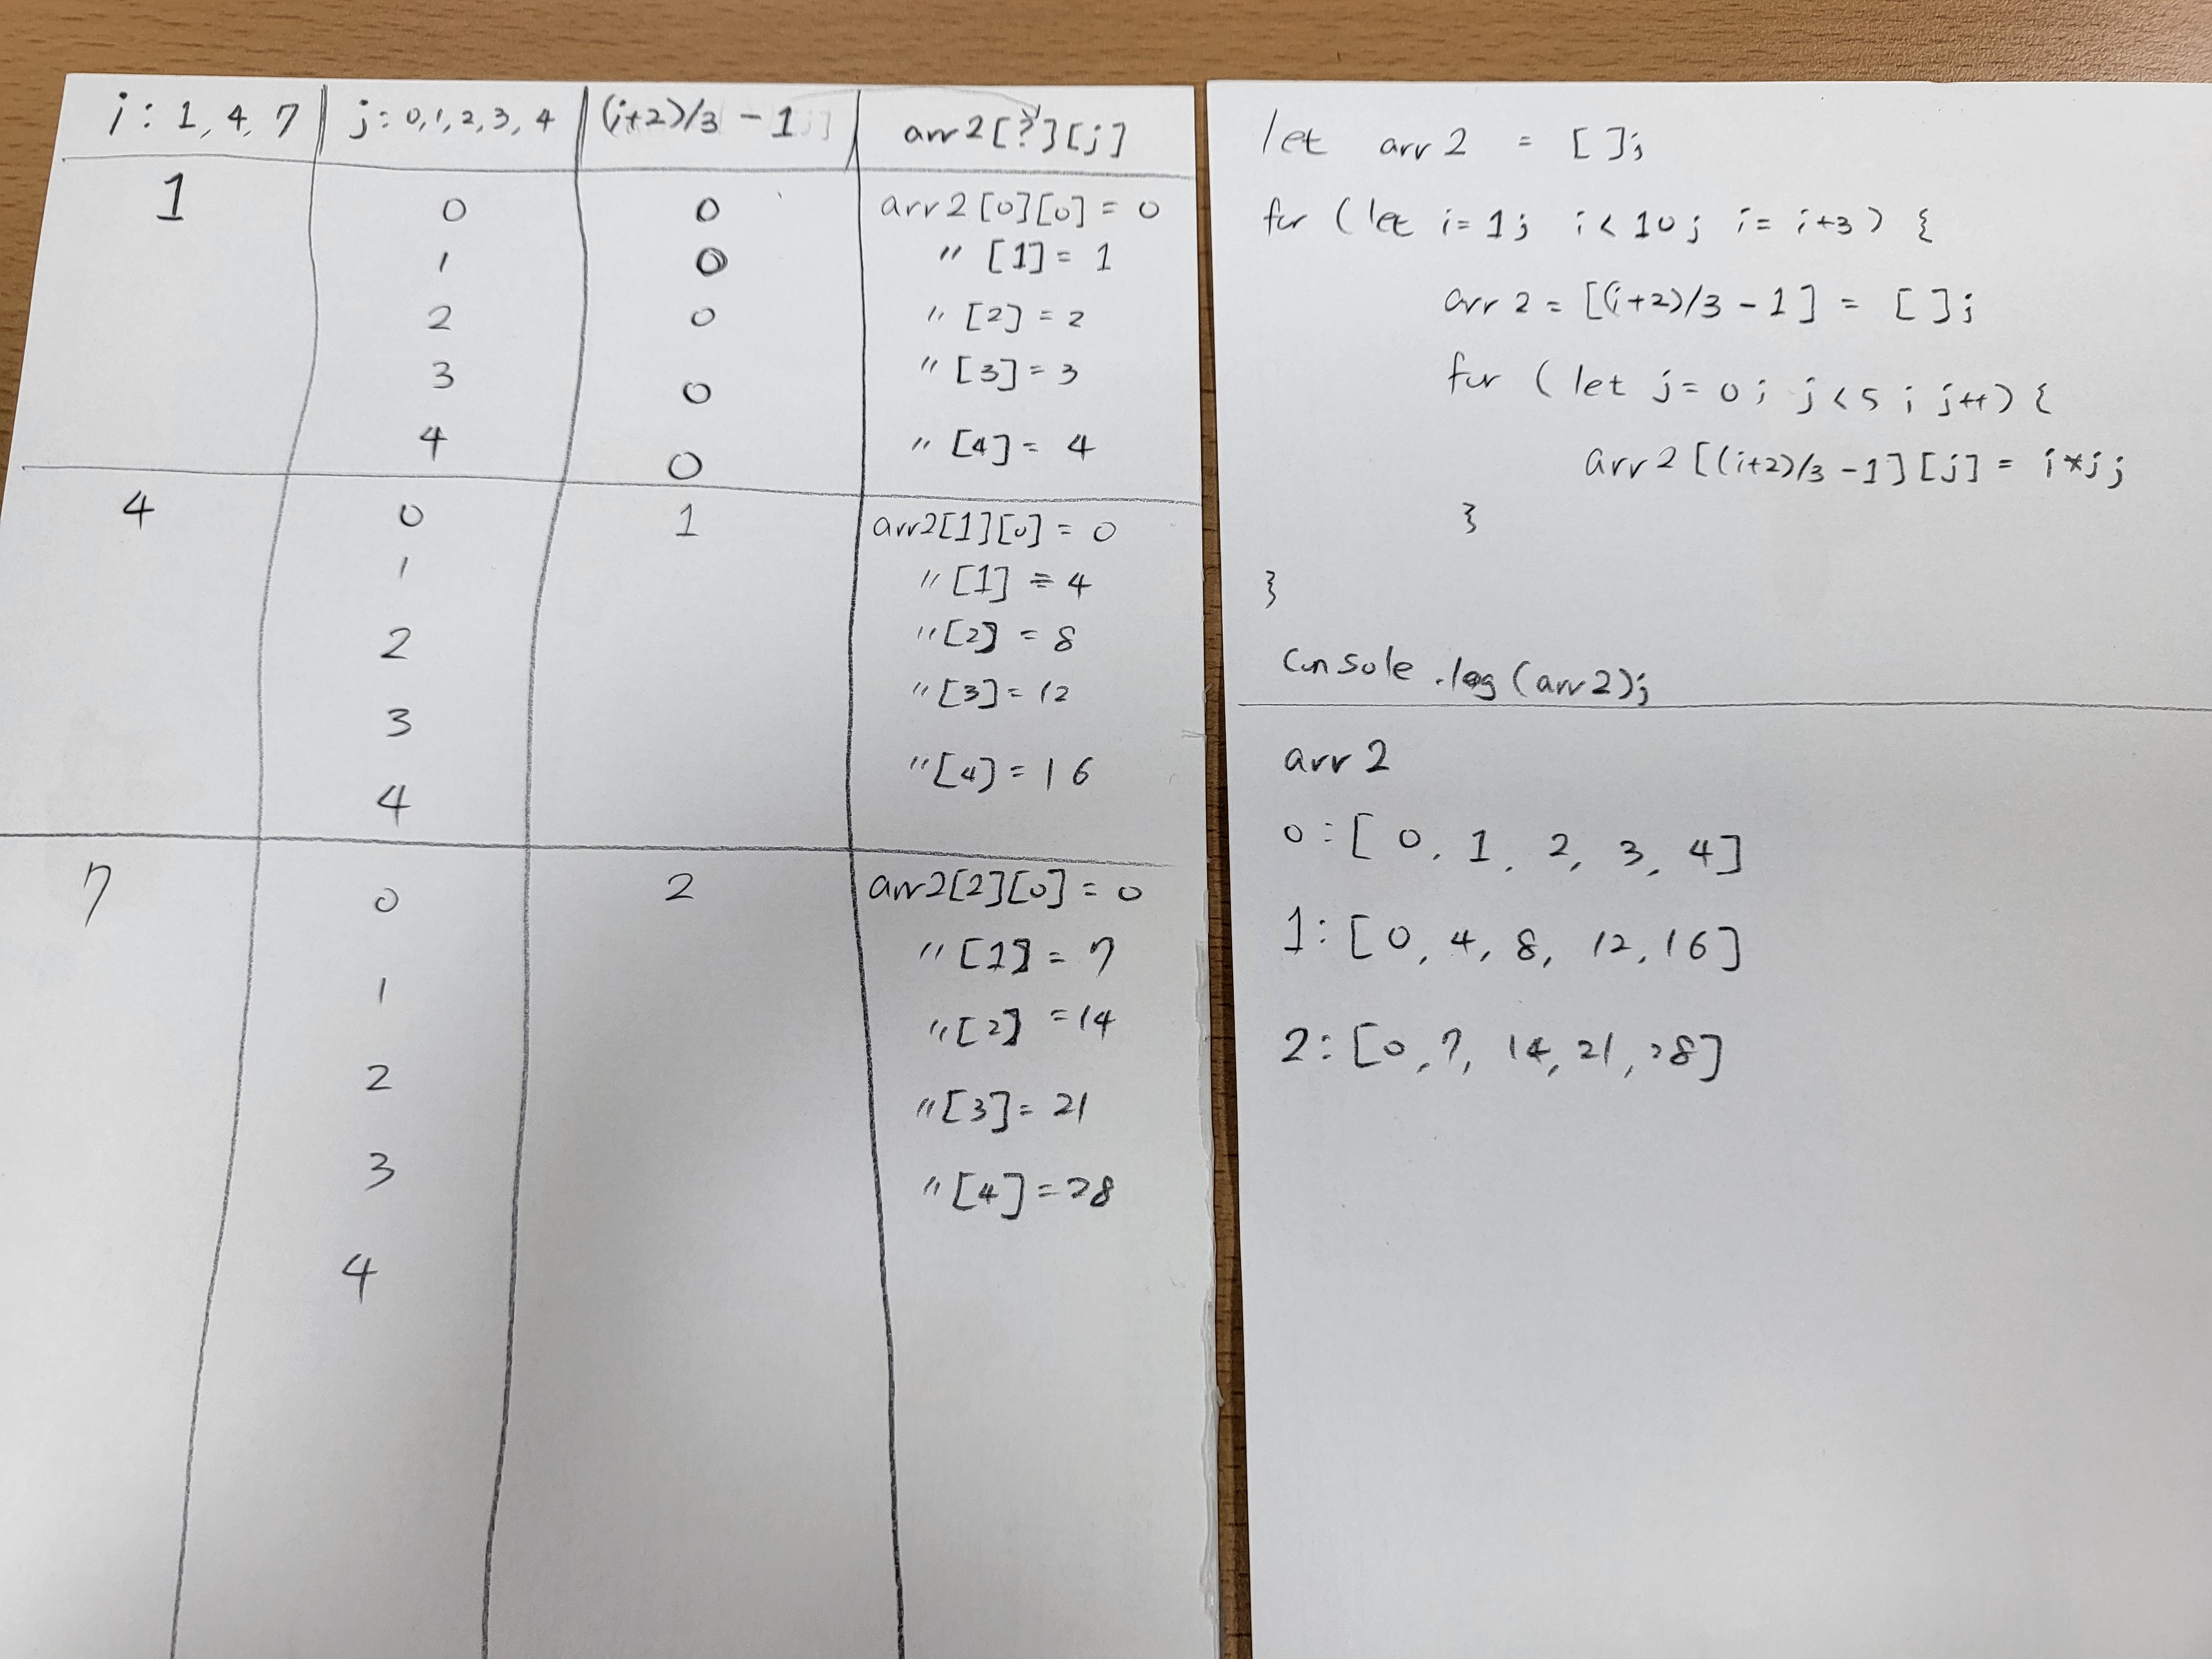 i : 1, 4, 7 j : 0, 1, 2, 3, 4 (i+2)/3 - 1 arr2[?][j]
1 0 0 arr2[0][0] = 0
1 0 〃 [1] = 1
2 0 〃 [2] = 2
3 0 〃 [3] = 3
4 0 〃 [4] = 4
4 0 1 arr2[1][0] = 0
1 〃 [1] = 4
2 〃 [2] = 8
3 〃 [3] = 12
4 〃 [4] = 16
7 0 2 arr2[2][0] = 0
1 〃 [1] = 7
2 〃 [2] = 14
3 〃 [3] = 21
4 〃 [4] = 28
let arr2 = [];
for (let i=1; i<10; i= i+3) {
arr2 = [(i+2)/3 - 1] = [];
for (let j=0; j<5; j++) {
arr2[(i+2)/3 - 1][j] = i*j;
}
}
console.log(arr2);
arr2
0 : [0, 1, 2, 3, 4]
1 : [0, 4, 8, 12, 16]
2 : [0, 7, 14, 21, 28]